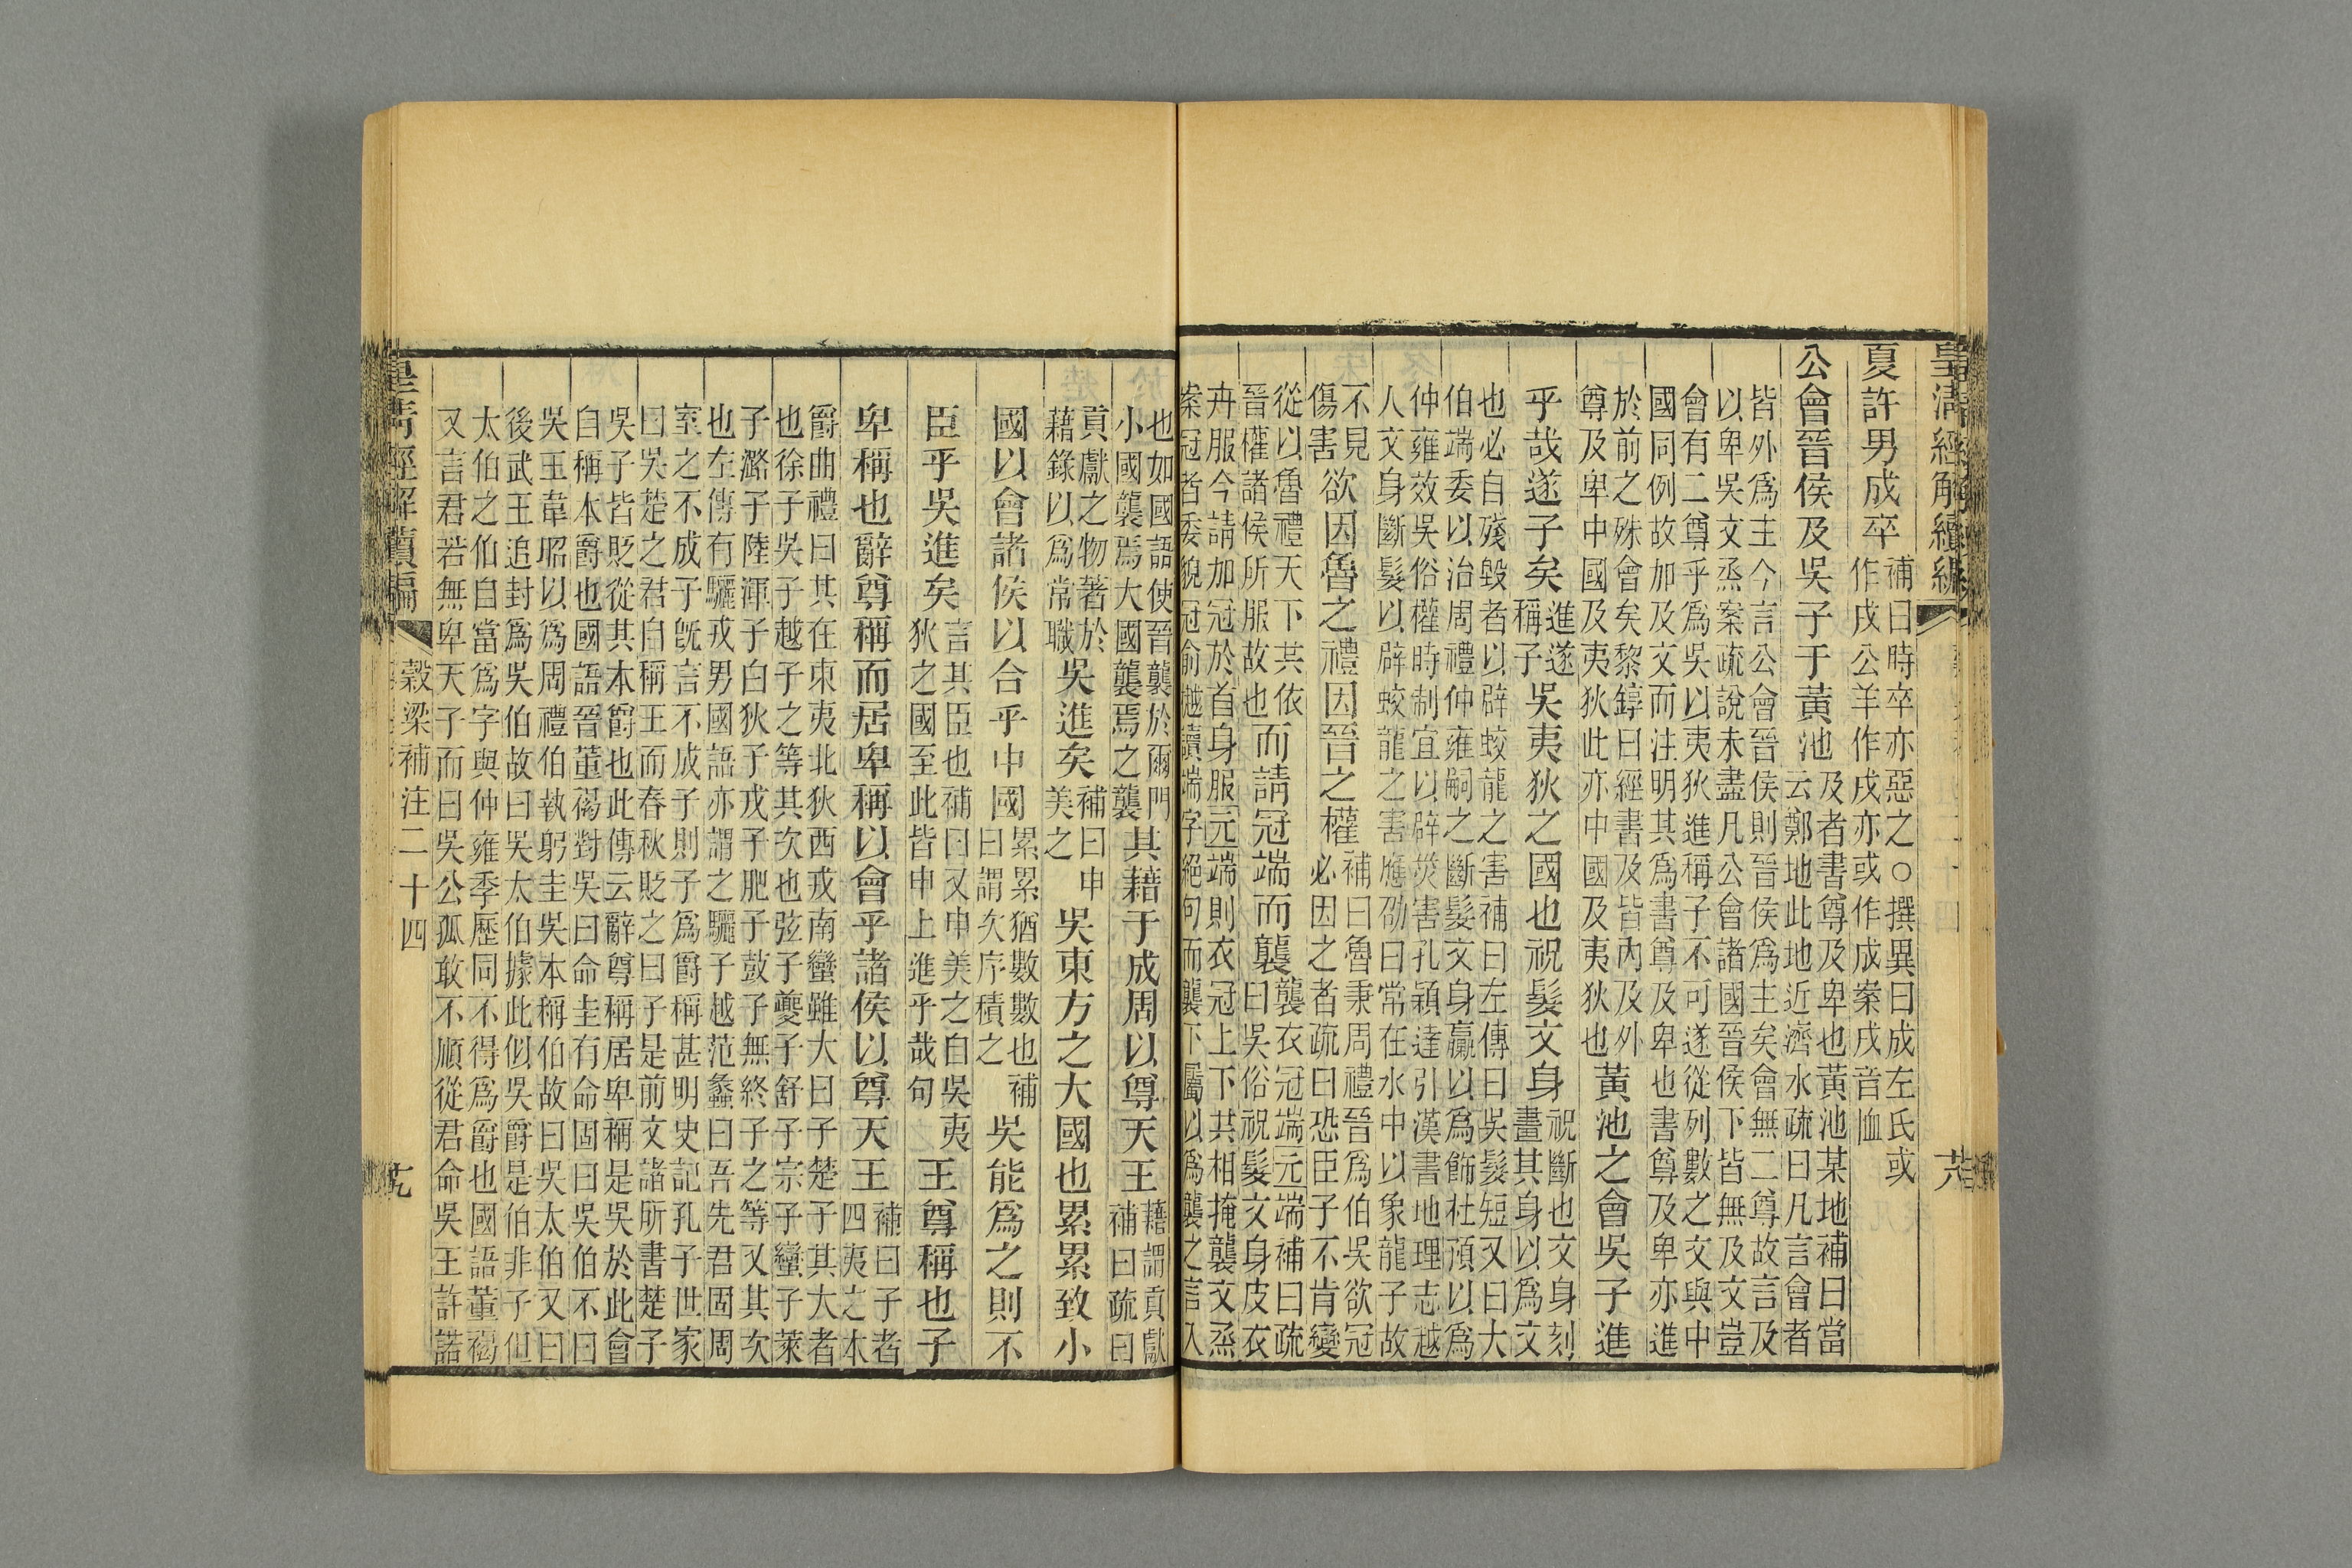 皇清經解續編
夏許男成卒
補曰時卒亦惡之○撰異曰成左氏或
作戌公羊作戌亦或作成案戌音恤
公會晉侯及吳子于黃池
及者書尊及卑也黃池某地補曰當
云鄭地此地近濟水疏曰凡言會者
皆外爲主今言公會晉侯則晉侯爲主矣會無二尊故言及
以卑吳文烝案疏說未盡凡公會諸國晉侯下皆無及文豈
會有二尊乎爲吳以夷狄進稱子不可遂從列數之文與中
國同例故加及文而注明其爲書尊及卑也書尊及卑亦進
於前之殊會矣黎錞曰經書及皆內及外
尊及卑中國及夷狄此亦中國及夷狄也
黃池之會吳子進
乎哉遂子矣
進遂
稱子
吳夷狄之國也祝髮文身
祝斷也文身刻
畫其身以爲文
也必自殘毀者以辟蛟龍之害補曰左傳曰吳髮短又曰大
伯端委以治周禮仲雍嗣之斷髮文身臝以爲飾杜預以爲
仲雍效吳俗權時制宜以辟災害孔穎達引漢書地理志越
人文身斷髮以辟蛟龍之害應劭曰常在水中以象龍子故
不見
傷害
欲因魯之禮因晉之權
補曰魯秉周禮晉爲伯吳欲冠
必因之者疏曰恐臣子不肯變
從以魯禮天下共依
晉權諸侯所服故也
而請冠端而襲
襲衣冠端元端補曰疏
曰吳俗祝髮文身皮衣
卉服今請加冠於首身服元端則衣冠上下共相掩襲文烝
案冠者委貌冠俞樾讀端字絕句而襲下屬以爲襲之言入
也如國語使晉襲於爾門
小國襲焉大國襲焉之襲
其藉于成周以尊天王
藉謂貢獻
補曰疏曰
貢獻之物著於
藉錄以爲常職
吳進矣
補曰申
美之
吳東方之大國也累累致小
國以會諸侯以合乎中國
累累猶數數也補
曰謂次序積之
吳能爲之則不
臣乎吳進矣
言其臣也補曰又申美之自吳夷
狄之國至此皆申上進乎哉句
王尊稱也子
卑稱也辭尊稱而居卑稱以會乎諸侯以尊天王
補曰子者
四夷之本
爵曲禮曰其在東夷北狄西戎南蠻雖大曰子楚子其大者
也徐子吳子越子之等其次也弦子夔子舒子宗子蠻子萊
子潞子陸渾子白狄子戎子肥子鼓子無終子之等又其次
也左傳有驪戎男國語亦謂之驪子越范蠡曰吾先君固周
室之不成子旣言不成子則子爲爵稱甚明史記孔子世家
曰吳楚之君自稱王而春秋貶之曰子是前文諸所書楚子
吳子皆貶從其本爵也此傳云辭尊稱居卑稱是吳於此會
自稱本爵也國語晉董褐對吳曰命圭有命固曰吳伯不曰
吳王韋昭以爲周禮伯執躬圭吳本稱伯故曰吳太伯又曰
後武王追封爲吳伯故曰吳太伯據此似吳爵是伯非子但
太伯之伯自當爲字與仲雍季歷同不得爲爵也國語董褐
又言君若無卑天子而曰吳公孤敢不順從君命吳王許諾
皇清經解續編
穀梁補注二十四